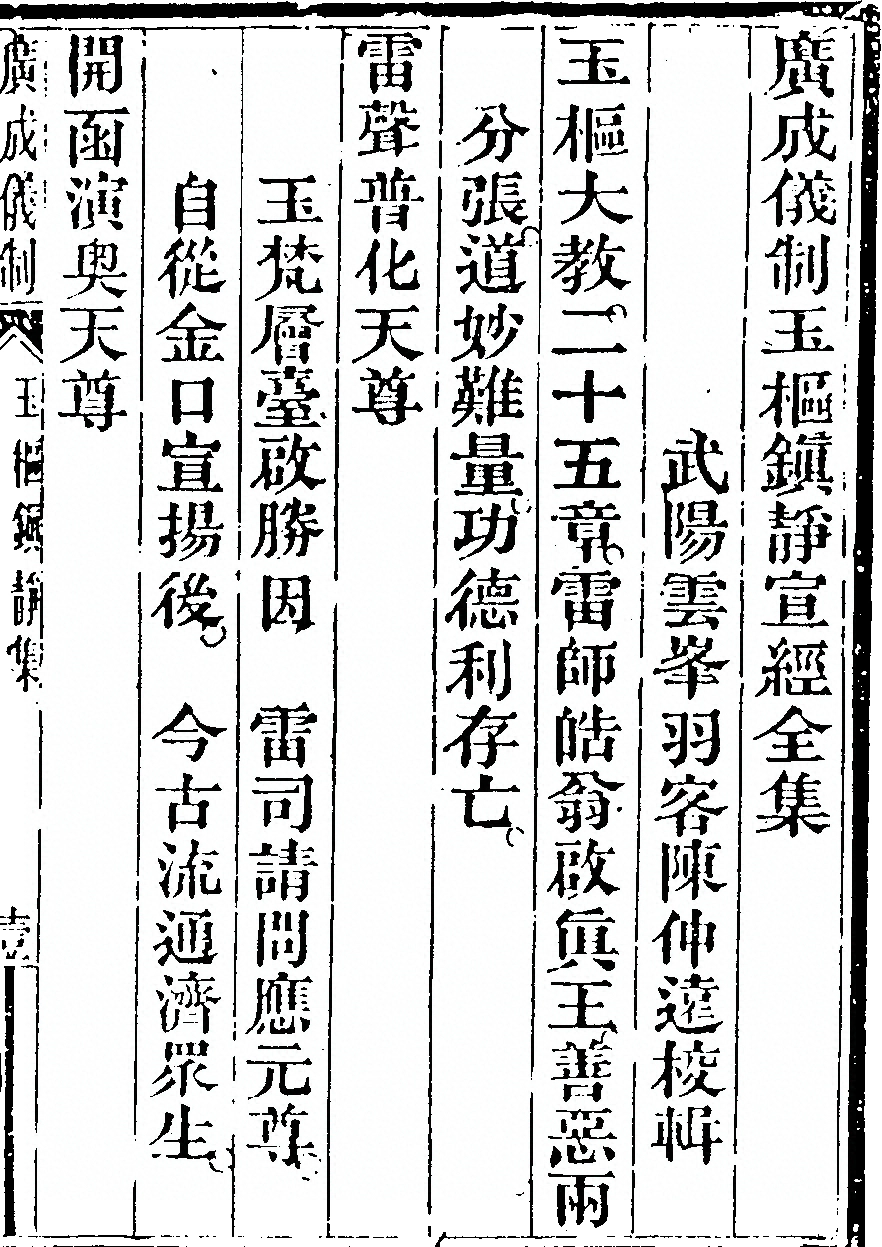 廣成儀制玉樞鎮靜宣經全集
武陽雲峯羽客陳仲遠校輯
玉樞大教二十五章雷師皓翁啟眞王善惡兩
分張道妙難量功德利存亡
雷聲普化天尊
玉梵層臺啟勝因　雷司請問應元尊
自從金口宣揚後　今古流通濟眾生
開函演奥天尊
廣成儀制　玉樞鎮靜集　壹